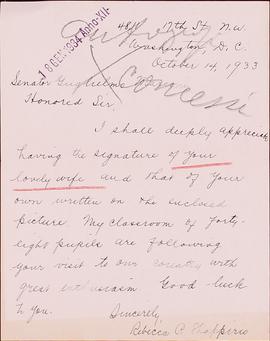 18 GEN. 1934 Anno XII
17th St. N.W.
Washington, D.C.
October 14, 1933
Senator Guglielmo
Honored Sir:
I shall deeply appreciate
having the signature of your
lovely wife and that of your
own written on the enclosed
picture. My classroom of forty-
eight pupils are following
your visit to our country with
great enthusiasm. Good-luck
to you.
Sincerely,
Rebecca P. Shappirio